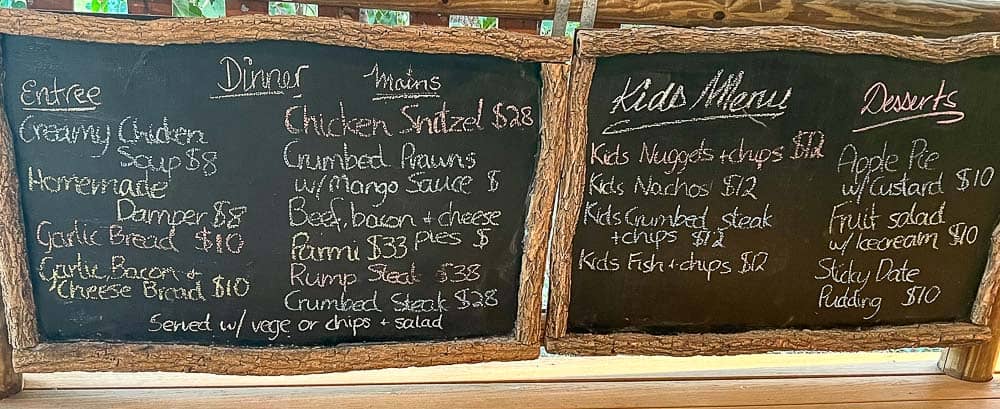 Dinner
Entree
Creamy Chicken
Soup $8
Homemade
Damper $8
Garlic Bread $10
Garlic, Bacon +
Cheese Bread $10
Mains
Chicken Snitzel $28
Crumbed Prawns
w/ Mango Sauce $
Beef, bacon + cheese
pies $
Parmi $33
Rump Steak $38
Crumbed Steak $28
Served w/ vege or chips + salad
Kids Menu
Kids Nuggets + chips $12
Kids Nachos $12
Kids Crumbed steak
+ chips $12
Kids Fish + chips $12
Desserts
Apple Pie
w/ Custard $10
Fruit salad
w/ Icecream $10
Sticky Date
Pudding $10